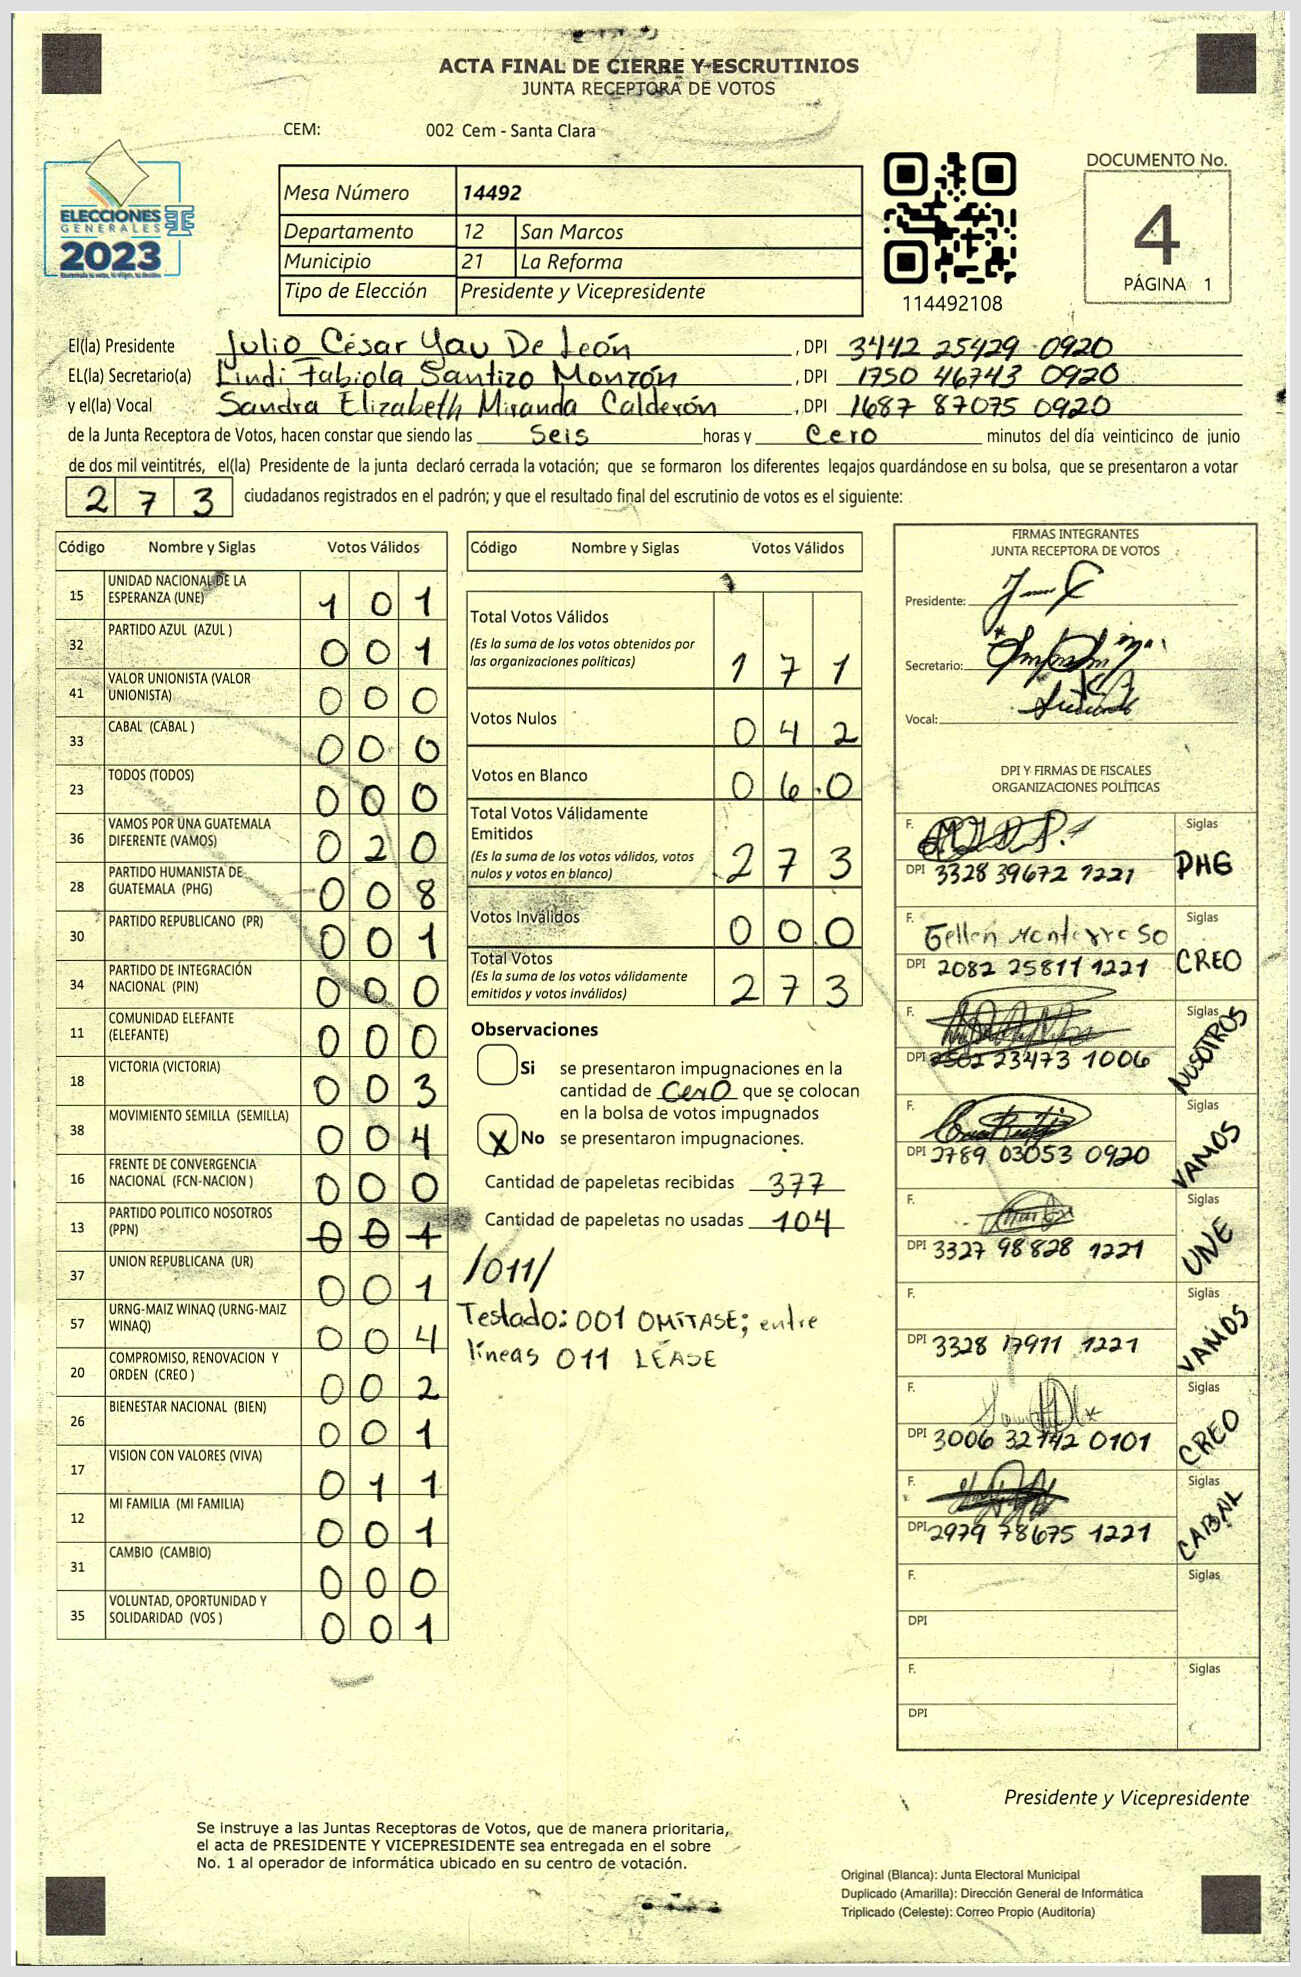 ACTA FINAL DE CIERRE Y ESCRUTINIOS
JUNTA RECEPTORA DE VOTOS
CEM: 002 Cem - Santa Clara
ELECCIONES
GENERALES
2023
Mesa Número 14492
Departamento 12 San Marcos
Municipio 21 La Reforma
Tipo de Elección Presidente y Vicepresidente
114492108
DOCUMENTO No.
4
PÁGINA 1
El(la) Presidente Julio César Yau De León, DPI 3442 25429 0920
EL(la) Secretario(a) Lindi Fabiola Santizo Monzón, DPI 1750 46743 0920
y el(la) Vocal Sandra Elizabeth Miranda Calderón, DPI 1687 87075 0920
de la Junta Receptora de Votos, hacen constar que siendo las Seis horas y Cero minutos del día veinticinco de junio
de dos mil veintitrés, el(la) Presidente de la junta declaró cerrada la votación; que se formaron los diferentes legajos guardándose en su bolsa, que se presentaron a votar
273 ciudadanos registrados en el padrón; y que el resultado final del escrutinio de votos es el siguiente:
Código Nombre y Siglas Votos Válidos
15 UNIDAD NACIONAL DE LA
ESPERANZA (UNE) 1 0 1
32 PARTIDO AZUL (AZUL ) 0 0 1
41 VALOR UNIONISTA (VALOR
UNIONISTA) 0 0 0
33 CABAL (CABAL ) 0 0 0
23 TODOS (TODOS) 0 0 0
36 VAMOS POR UNA GUATEMALA
DIFERENTE (VAMOS) 0 2 0
28 PARTIDO HUMANISTA DE
GUATEMALA (PHG) 0 0 8
30 PARTIDO REPUBLICANO (PR) 0 0 1
34 PARTIDO DE INTEGRACIÓN
NACIONAL (PIN) 0 0 0
11 COMUNIDAD ELEFANTE
(ELEFANTE) 0 0 0
18 VICTORIA (VICTORIA) 0 0 3
38 MOVIMIENTO SEMILLA (SEMILLA) 0 0 4
16 FRENTE DE CONVERGENCIA
NACIONAL (FCN-NACION ) 0 0 0
13 PARTIDO POLITICO NOSOTROS
(PPN) 0 0 1
37 UNION REPUBLICANA (UR) 0 0 1
57 URNG-MAIZ WINAQ (URNG-MAIZ
WINAQ) 0 0 4
20 COMPROMISO, RENOVACION Y
ORDEN (CREO ) 0 0 2
26 BIENESTAR NACIONAL (BIEN) 0 0 1
17 VISION CON VALORES (VIVA) 0 1 1
12 MI FAMILIA (MI FAMILIA) 0 0 1
31 CAMBIO (CAMBIO) 0 0 0
35 VOLUNTAD, OPORTUNIDAD Y
SOLIDARIDAD (VOS ) 0 0 1
Código Nombre y Siglas Votos Válidos
Total Votos Válidos
(Es la suma de los votos obtenidos por
las organizaciones políticas) 1 7 1
Votos Nulos 0 4 2
Votos en Blanco 0 6 0
Total Votos Válidamente
Emitidos
(Es la suma de los votos válidos, votos
nulos y votos en blanco) 2 7 3
Votos Inválidos 0 0 0
Total Votos
(Es la suma de los votos válidamente
emitidos y votos inválidos) 2 7 3
Observaciones
Si se presentaron impugnaciones en la
cantidad de Cero que se colocan
en la bolsa de votos impugnados
X No se presentaron impugnaciones.
Cantidad de papeletas recibidas 377
Cantidad de papeletas no usadas 104
/011/
Testado: 001 OMÍTASE; entre
líneas 011 LÉASE
FIRMAS INTEGRANTES
JUNTA RECEPTORA DE VOTOS
Presidente:
Secretario:
Vocal:
DPI Y FIRMAS DE FISCALES
ORGANIZACIONES POLÍTICAS
F. Siglas
DPI 3328 39672 1221 PHG
F. Monterroso Siglas
DPI 2082 25811 1221 CREO
F. Siglas
DPI 2502 23473 1006 NOSOTROS
F. Siglas
DPI 2789 03053 0920 VAMOS
F. Siglas
DPI 3327 98828 1221 UNE
F. Siglas
DPI 3328 17911 1221 VAMOS
F. Siglas
DPI 3006 32142 0101 CREO
F. Siglas
DPI 2979 78675 1221 CABAL
F. Siglas
DPI
F. Siglas
DPI
Presidente y Vicepresidente
Se instruye a las Juntas Receptoras de Votos, que de manera prioritaria,
el acta de PRESIDENTE Y VICEPRESIDENTE sea entregada en el sobre
No. 1 al operador de informática ubicado en su centro de votación.
Original (Blanca): Junta Electoral Municipal
Duplicado (Amarilla): Dirección General de Informática
Triplicado (Celeste): Correo Propio (Auditoría)